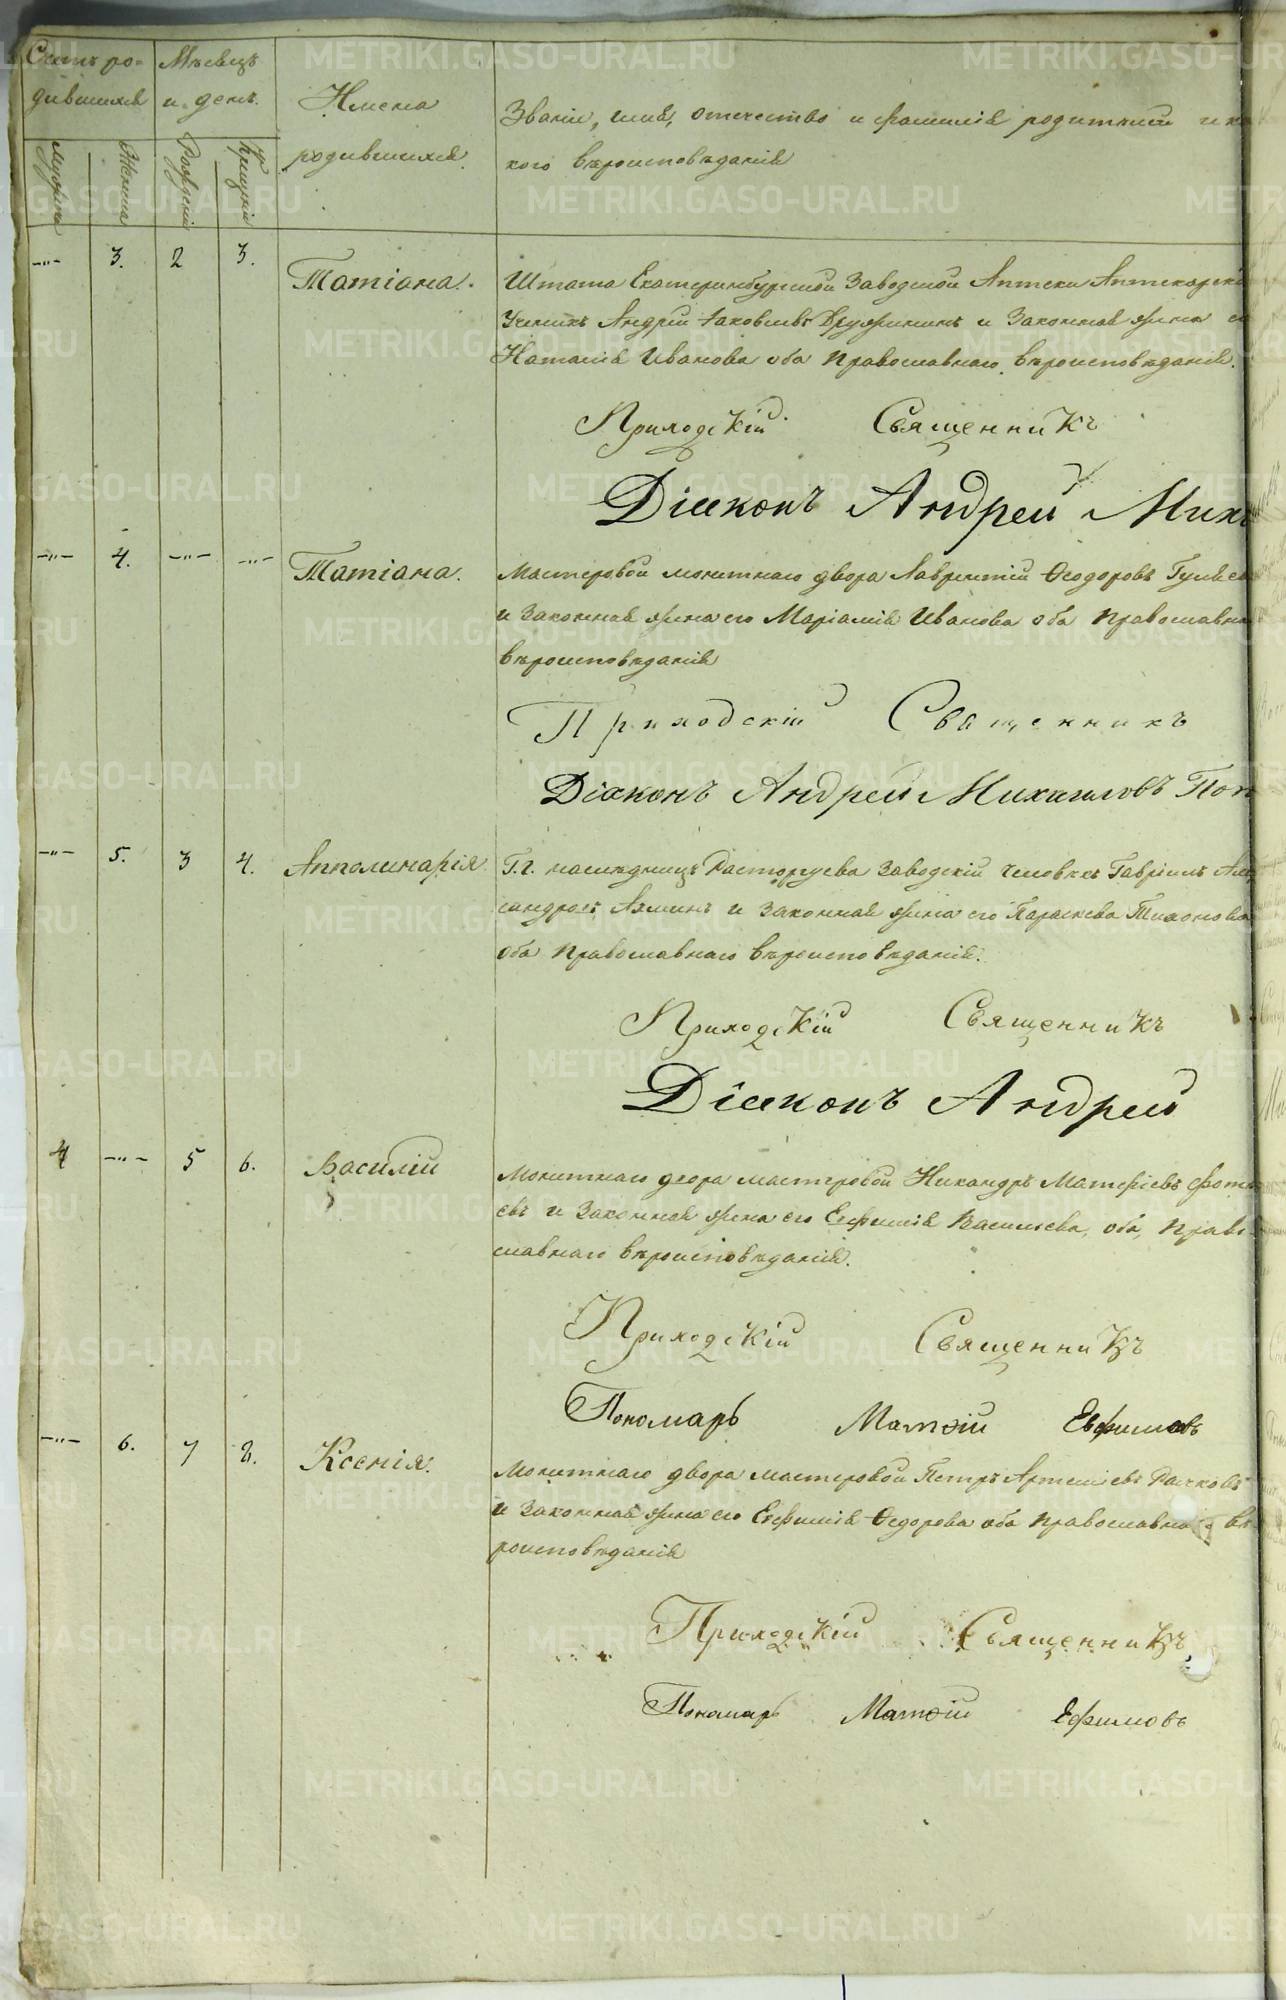 Счетъ ро-
дившихся
Мѣсяцъ
и день.
Имена
родившихся.
Званіе, имя, отчество и фамилія родителей и ка
кого вѣроисповѣданія
мужеска
Женска
Рожденія
Крещенія
3. 2 3.
Татіана.
Штата Екатеринбургской Заводской Аптеки Аптекарскій
Ученикъ Андрей Іаковлевъ Дружининъ и Законная жена е
Наталія Иванова оба Православнаго вѣроисповѣданія.
Приходскій Священникъ
Діаконъ Андрей Миха
4.
Татіана.
Мастеровой монетнаго двора Лаврентій Ѳеодоровъ Гуляев
и Законная жена его Маріамія Иванова оба Православна
вѣроисповѣданія
Приходскій Священникъ
Діаконъ Андрей Михаиловъ Поп
5. 3 4.
Апполинарія
Г.г. наслѣдницъ Расторгуева Заводскій человѣкъ Гавріилъ Але
сандровъ и Законная жена его Параскева Тихонова
оба Православнаго вѣроисповѣданія.
Приходскій Священникъ
Діаконъ Андрей
4 5 6.
Василій
Монетнаго двора мастеровой Никандръ Матфіевъ Фоте
евъ и Законная жена его Евфимія Васильева, оба, Право-
славнаго вѣроисповѣданія.
Приходскій Священникъ
Пономарь Матѳій Евфимовъ
6. 7 8.
Ксенія.
Монетнаго двора мастеровой Петръ Артемьевъ Рачковъ
и Законная жена его Евфимія Ѳедорова оба Православнаго вѣ
роисповѣданія
Приходскій Священникъ
Пономарь Матѳій Ефимовъ
METRIKI.GASO-URAL.RU